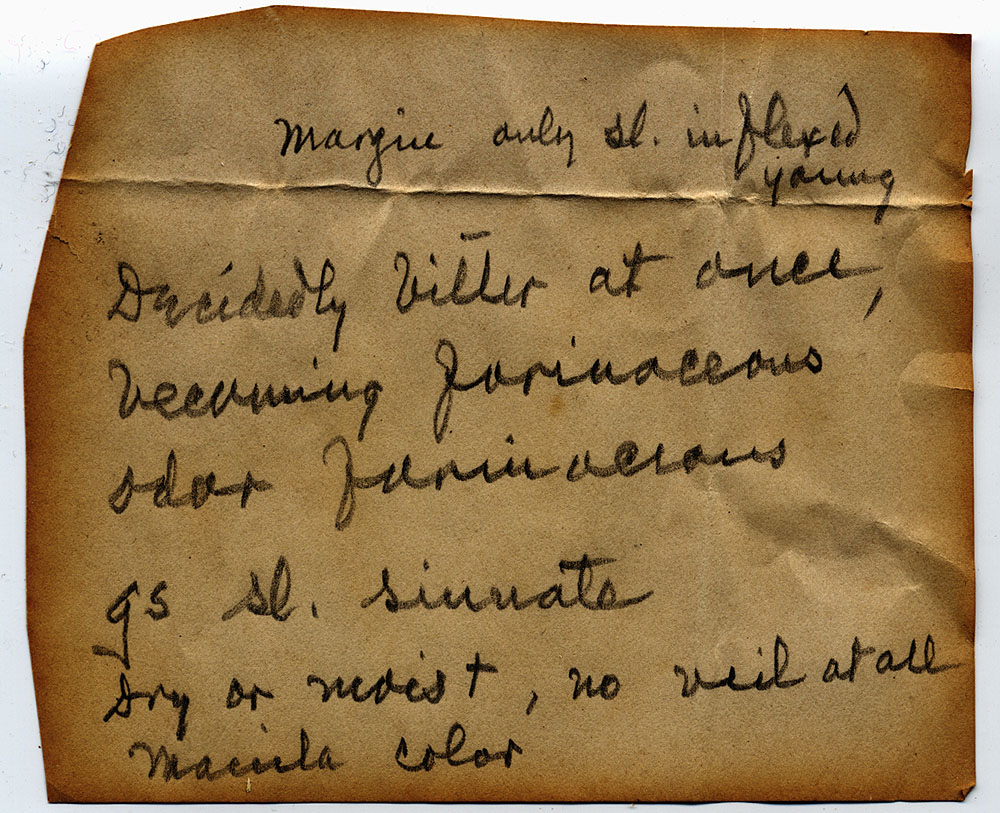 Margin only sl. inflexed
young
Decidedly bitter at once,
becoming farinaceous
odor farinaceous
gs sl. sinuate
Dry or moist, no veil at all
Manila color